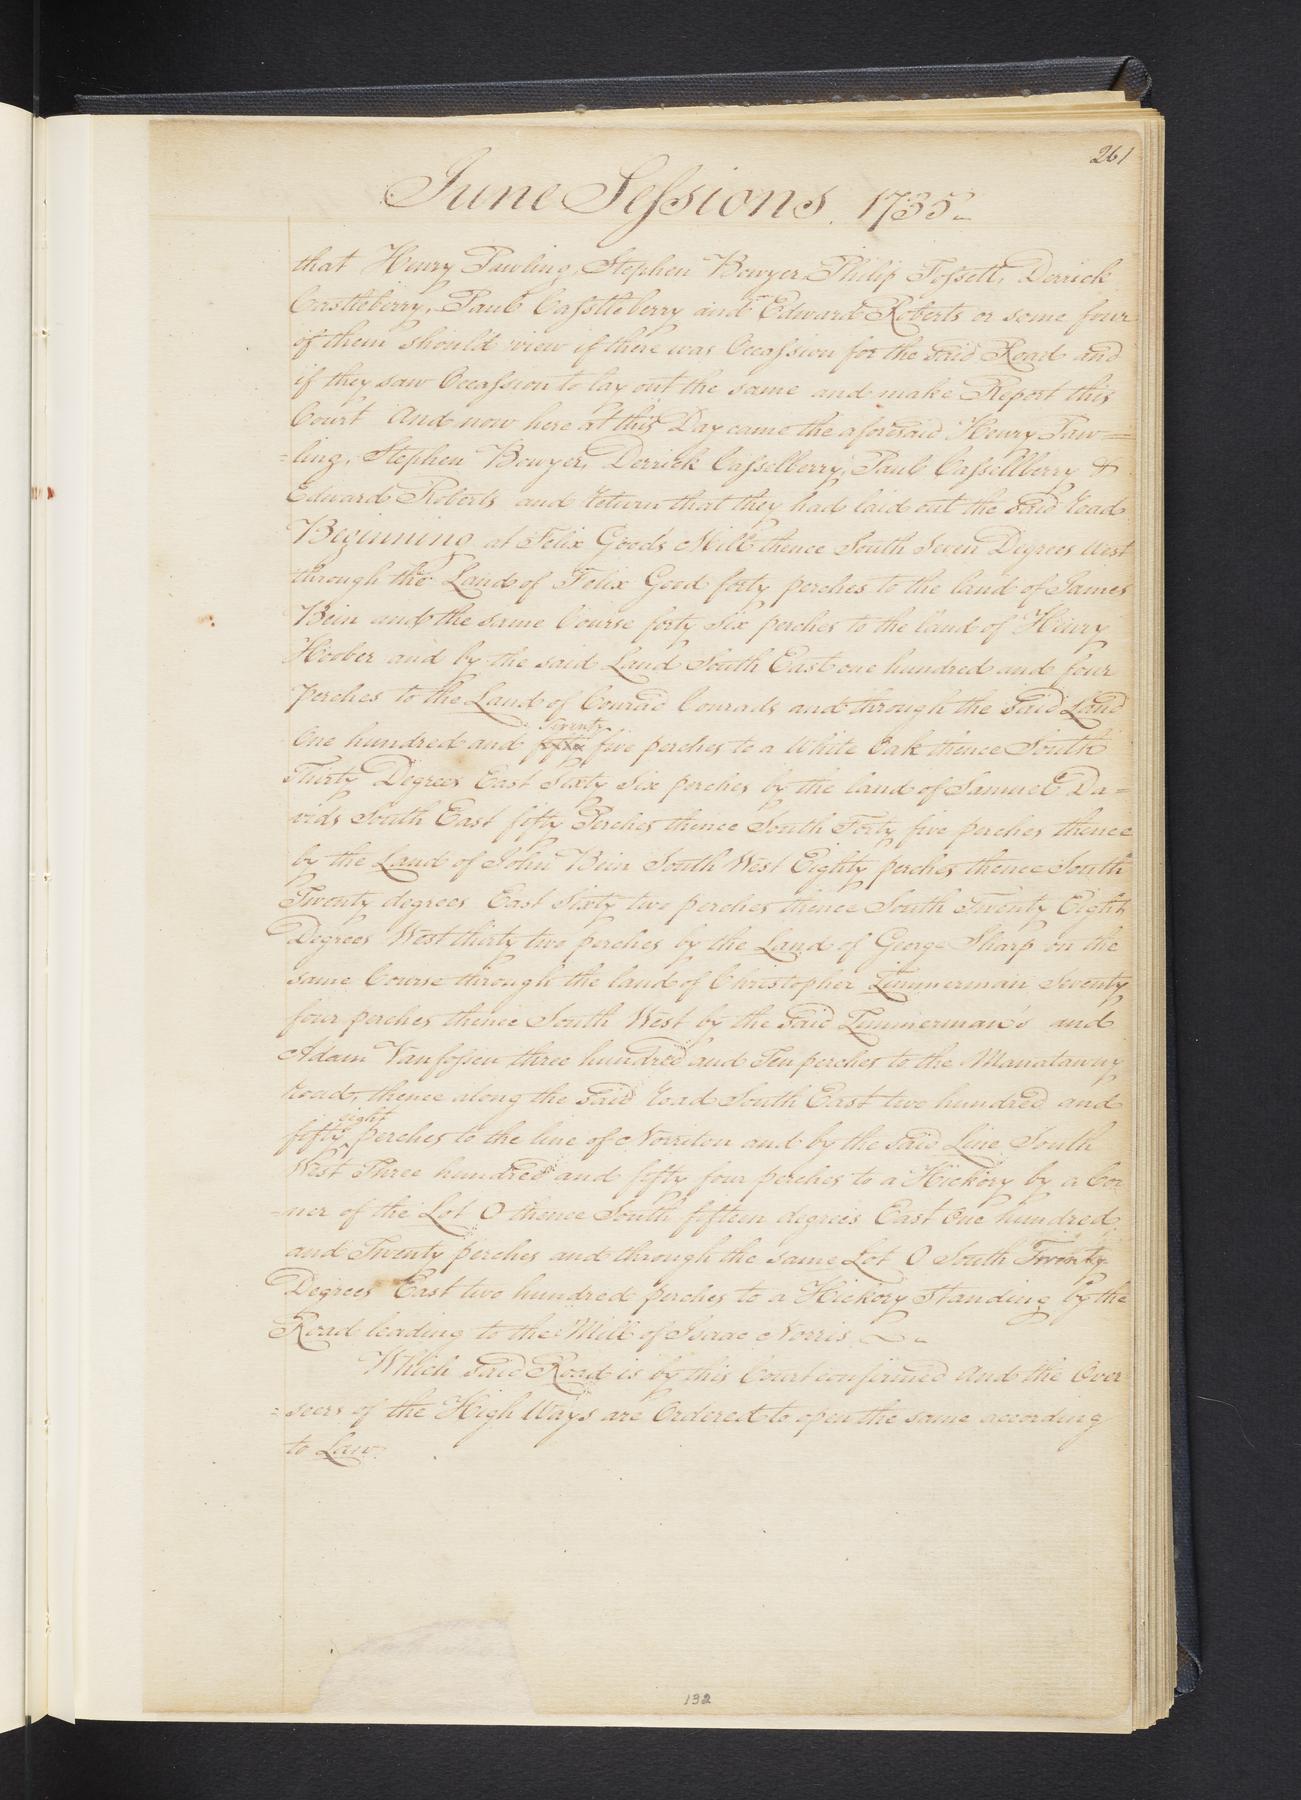 261
June Sessions. 1735
that Henry Pawling, Stephen Bowyer, Philip Fossett, Derrick
Castleberry, Paul Casstleberry and Edward Roberts or some four
of them should view if there was Occassion for the said Road and
if they saw Occassion to lay out the same and make Report this
Court And now here at this Day came the aforesaid Henry Paw=
=ling, Stephen Bowyer, Derrick Casselberry, Paul Cassellberry &
Edward Roberts and return that they had laid out the said road
Beginning at Felix Goods Mill thence South Seven Degrees West
through the Land of Felix Good forty perches to the land of James
Bein and the same Course forty six perches to the land of Henry
Hoober and by the said Land South East one hundred and four
perches to the Land of Conrad Conrads and through the said Land
Seventy
One hundred and five perches to a White Oak thence South
Thirty Degrees East Sixty Six perches by the land of Samuel Da=
vids South East fifty Perches thence South Forty five perches thence
by the Land of John Bein South West Eighty perches thence South
Twenty degrees East Sixty two perches thence South Twenty Eight
Degrees West thirty two perches by the Land of George Sharp on the
same Course through the land of Christopher Zimmerman Seventy
four perches thence South West by the said Zimmerman's and
Adam Vanfossen three hundred and Ten perches to the Manatawny
road, thence along the said road South East two hundred and
eight
fifty perches to the line of Norriton and by the said Line South
West Three hundred and fifty four perches to a Hickory by a Cor
=ner of the Lot O thence South fifteen degrees East One hundred
and Twenty perches and through the same Lot O South Twenty
Degrees East two hundred perches to a Hickory Standing by the
Road leading to the Mill of Isaac Norris
Which said Road is by this Court confirmed And the Over
=seers of the High Ways are Ordered to open the same according
to Law.
132